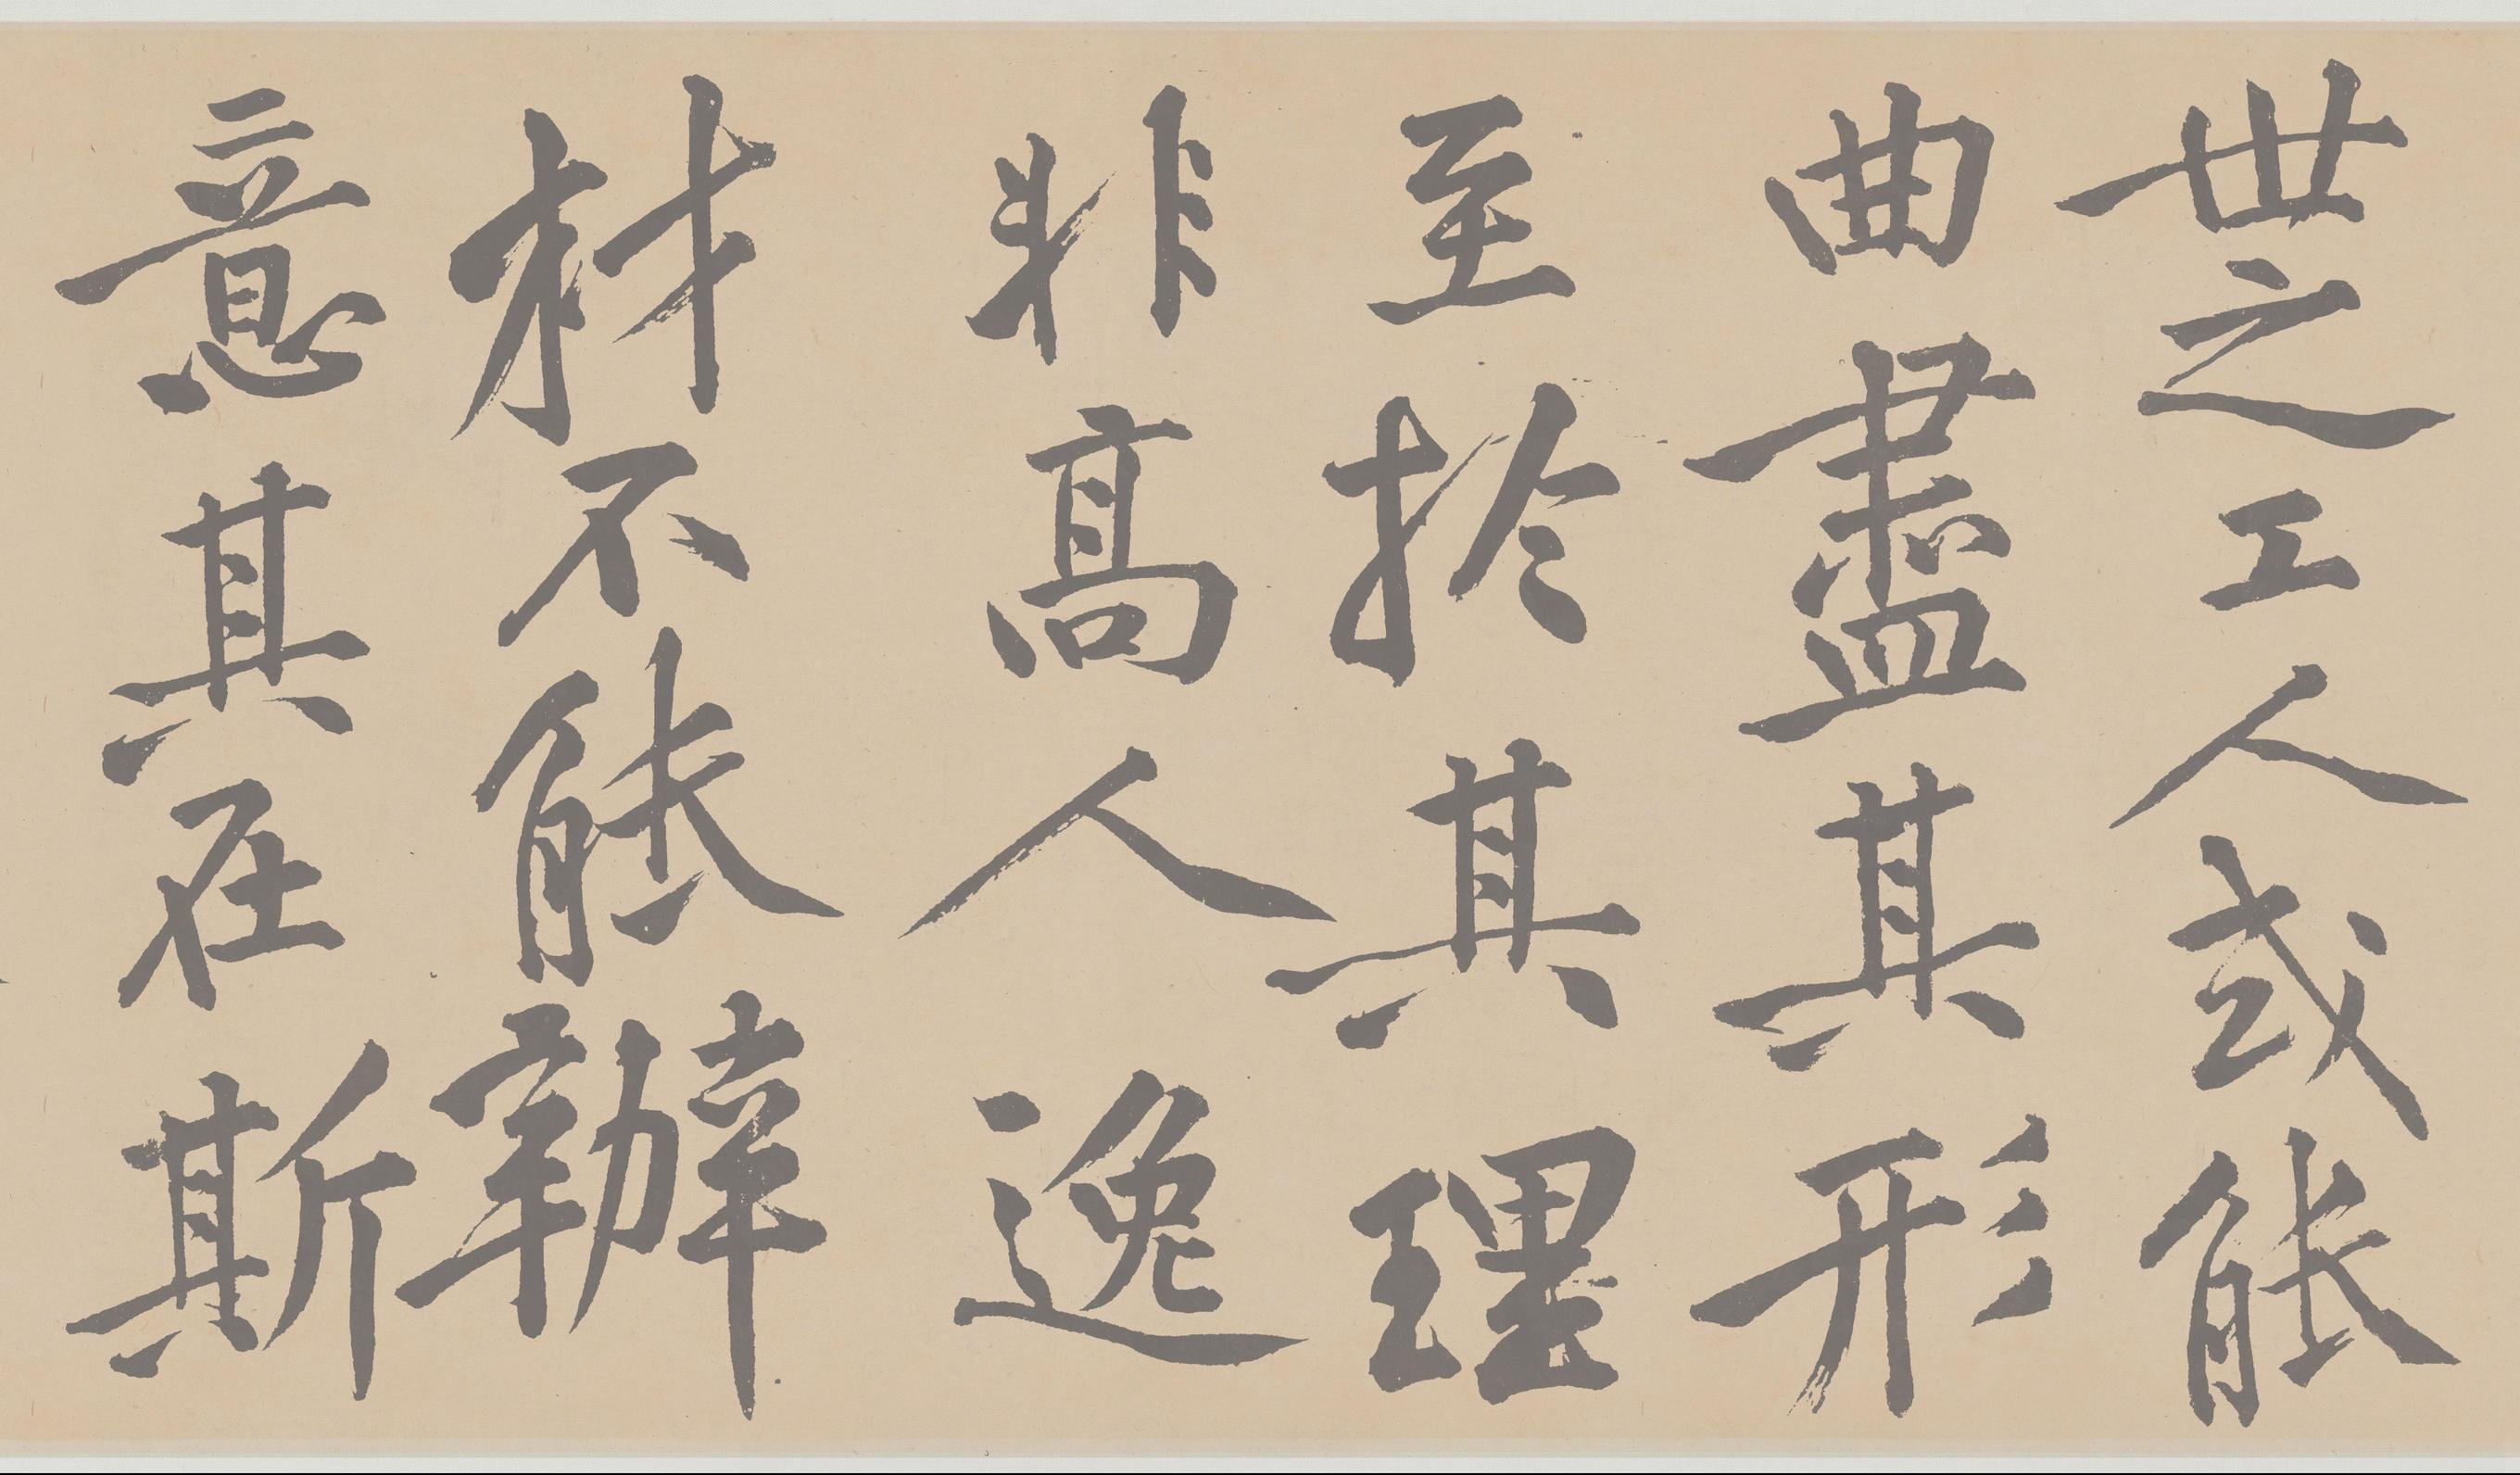 世之工人或能
曲盡其形
至於其理
非高人逸
材不能辦
意其在斯